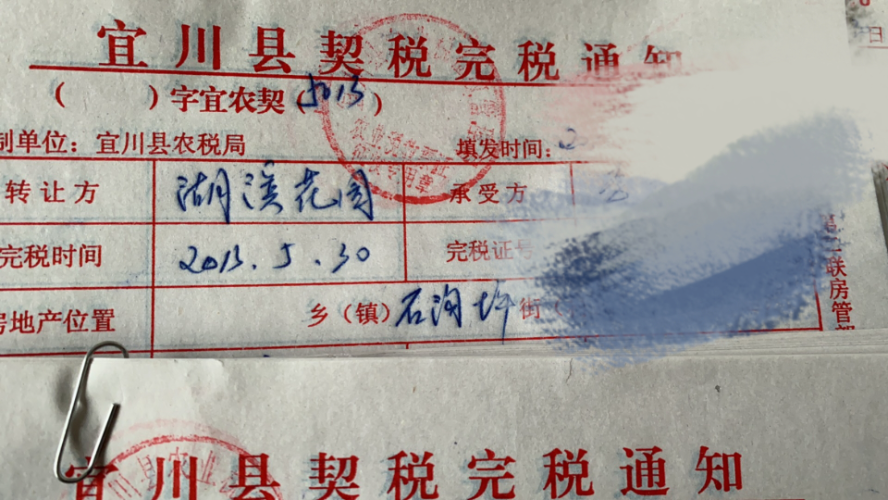 宜川县契税完税通知
( )字宜农契(2013)
制单位：宜川县农税局 填发时间：2
转让方 湖滨花园 承受方
完税时间 2013.5.30 完税证号
房地产位置 乡（镇）石沟坪街
第一联房管部
宜川县契税完税通知